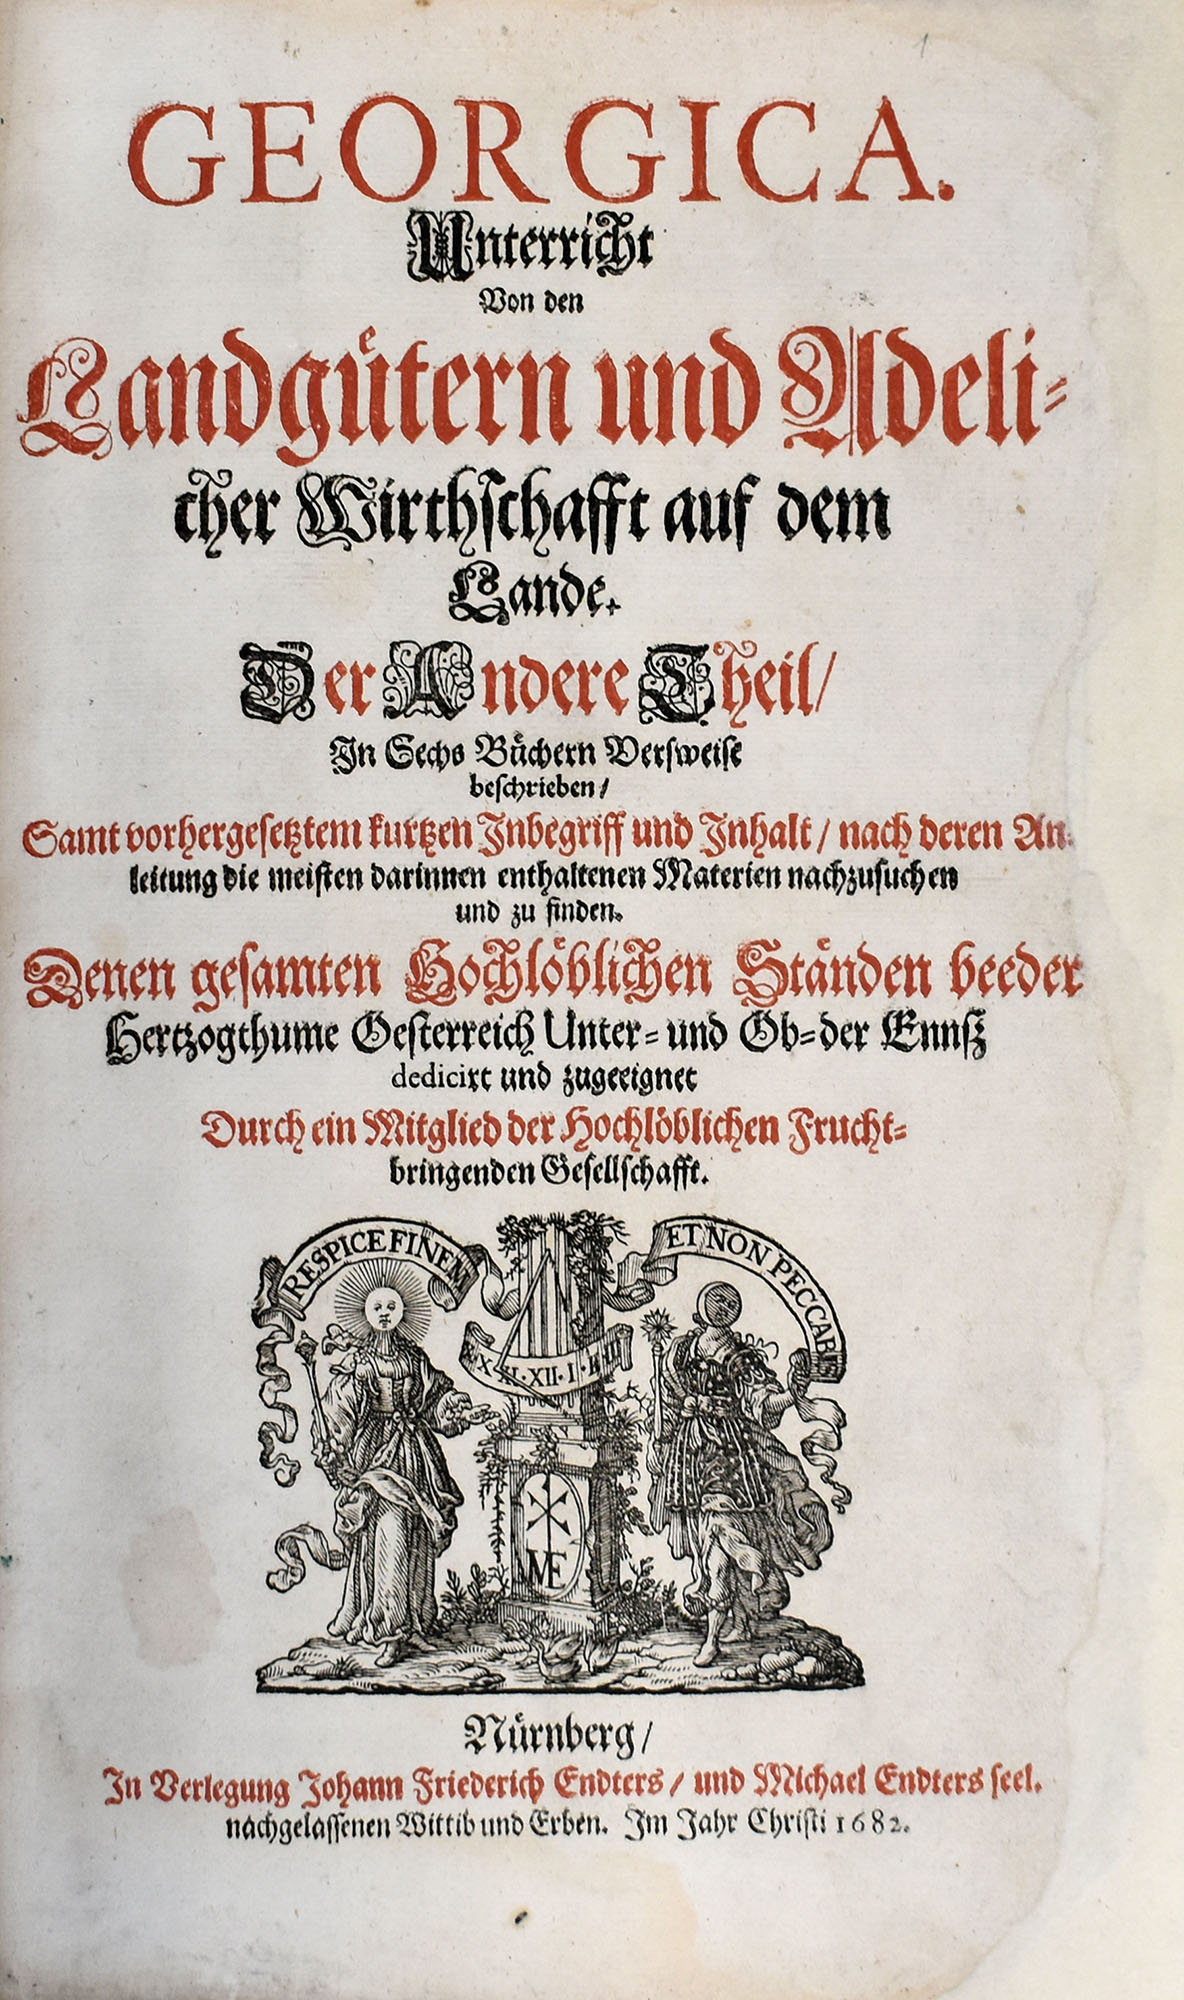 1
GEORGICA.
Unterricht
Von den
Landguͤtern und Adeli-
cher Wirthſchafft auf dem
Lande.
Der Andere Theil/
In Sechs Buͤchern Versweiſe
beſchrieben/
Samt vorhergeſetztem kurtzen Inbegriff und Inhalt / nach deren An-
leitung die meiſten darinnen enthaltenen Materien nachzuſuchen
und zu finden.
Denen geſamten Hochloͤblichen Staͤnden beeder
Hertzogthume Oeſterreich Unter- und Ob-der Ennſz
dedicirt und zugeeignet
Durch ein Mitglied der Hochloͤblichen Frucht-
bringenden Geſellſchafft.
RESPICE FINEM
ET NON PECCABIS
X·XI·XII·I·II·III
ME
Nuͤrnberg/
In Verlegung Johann Friederich Endters / und Michael Endters ſeel.
nachgelaſſenen Wittib und Erben. Im Jahr Chriſti 1682.